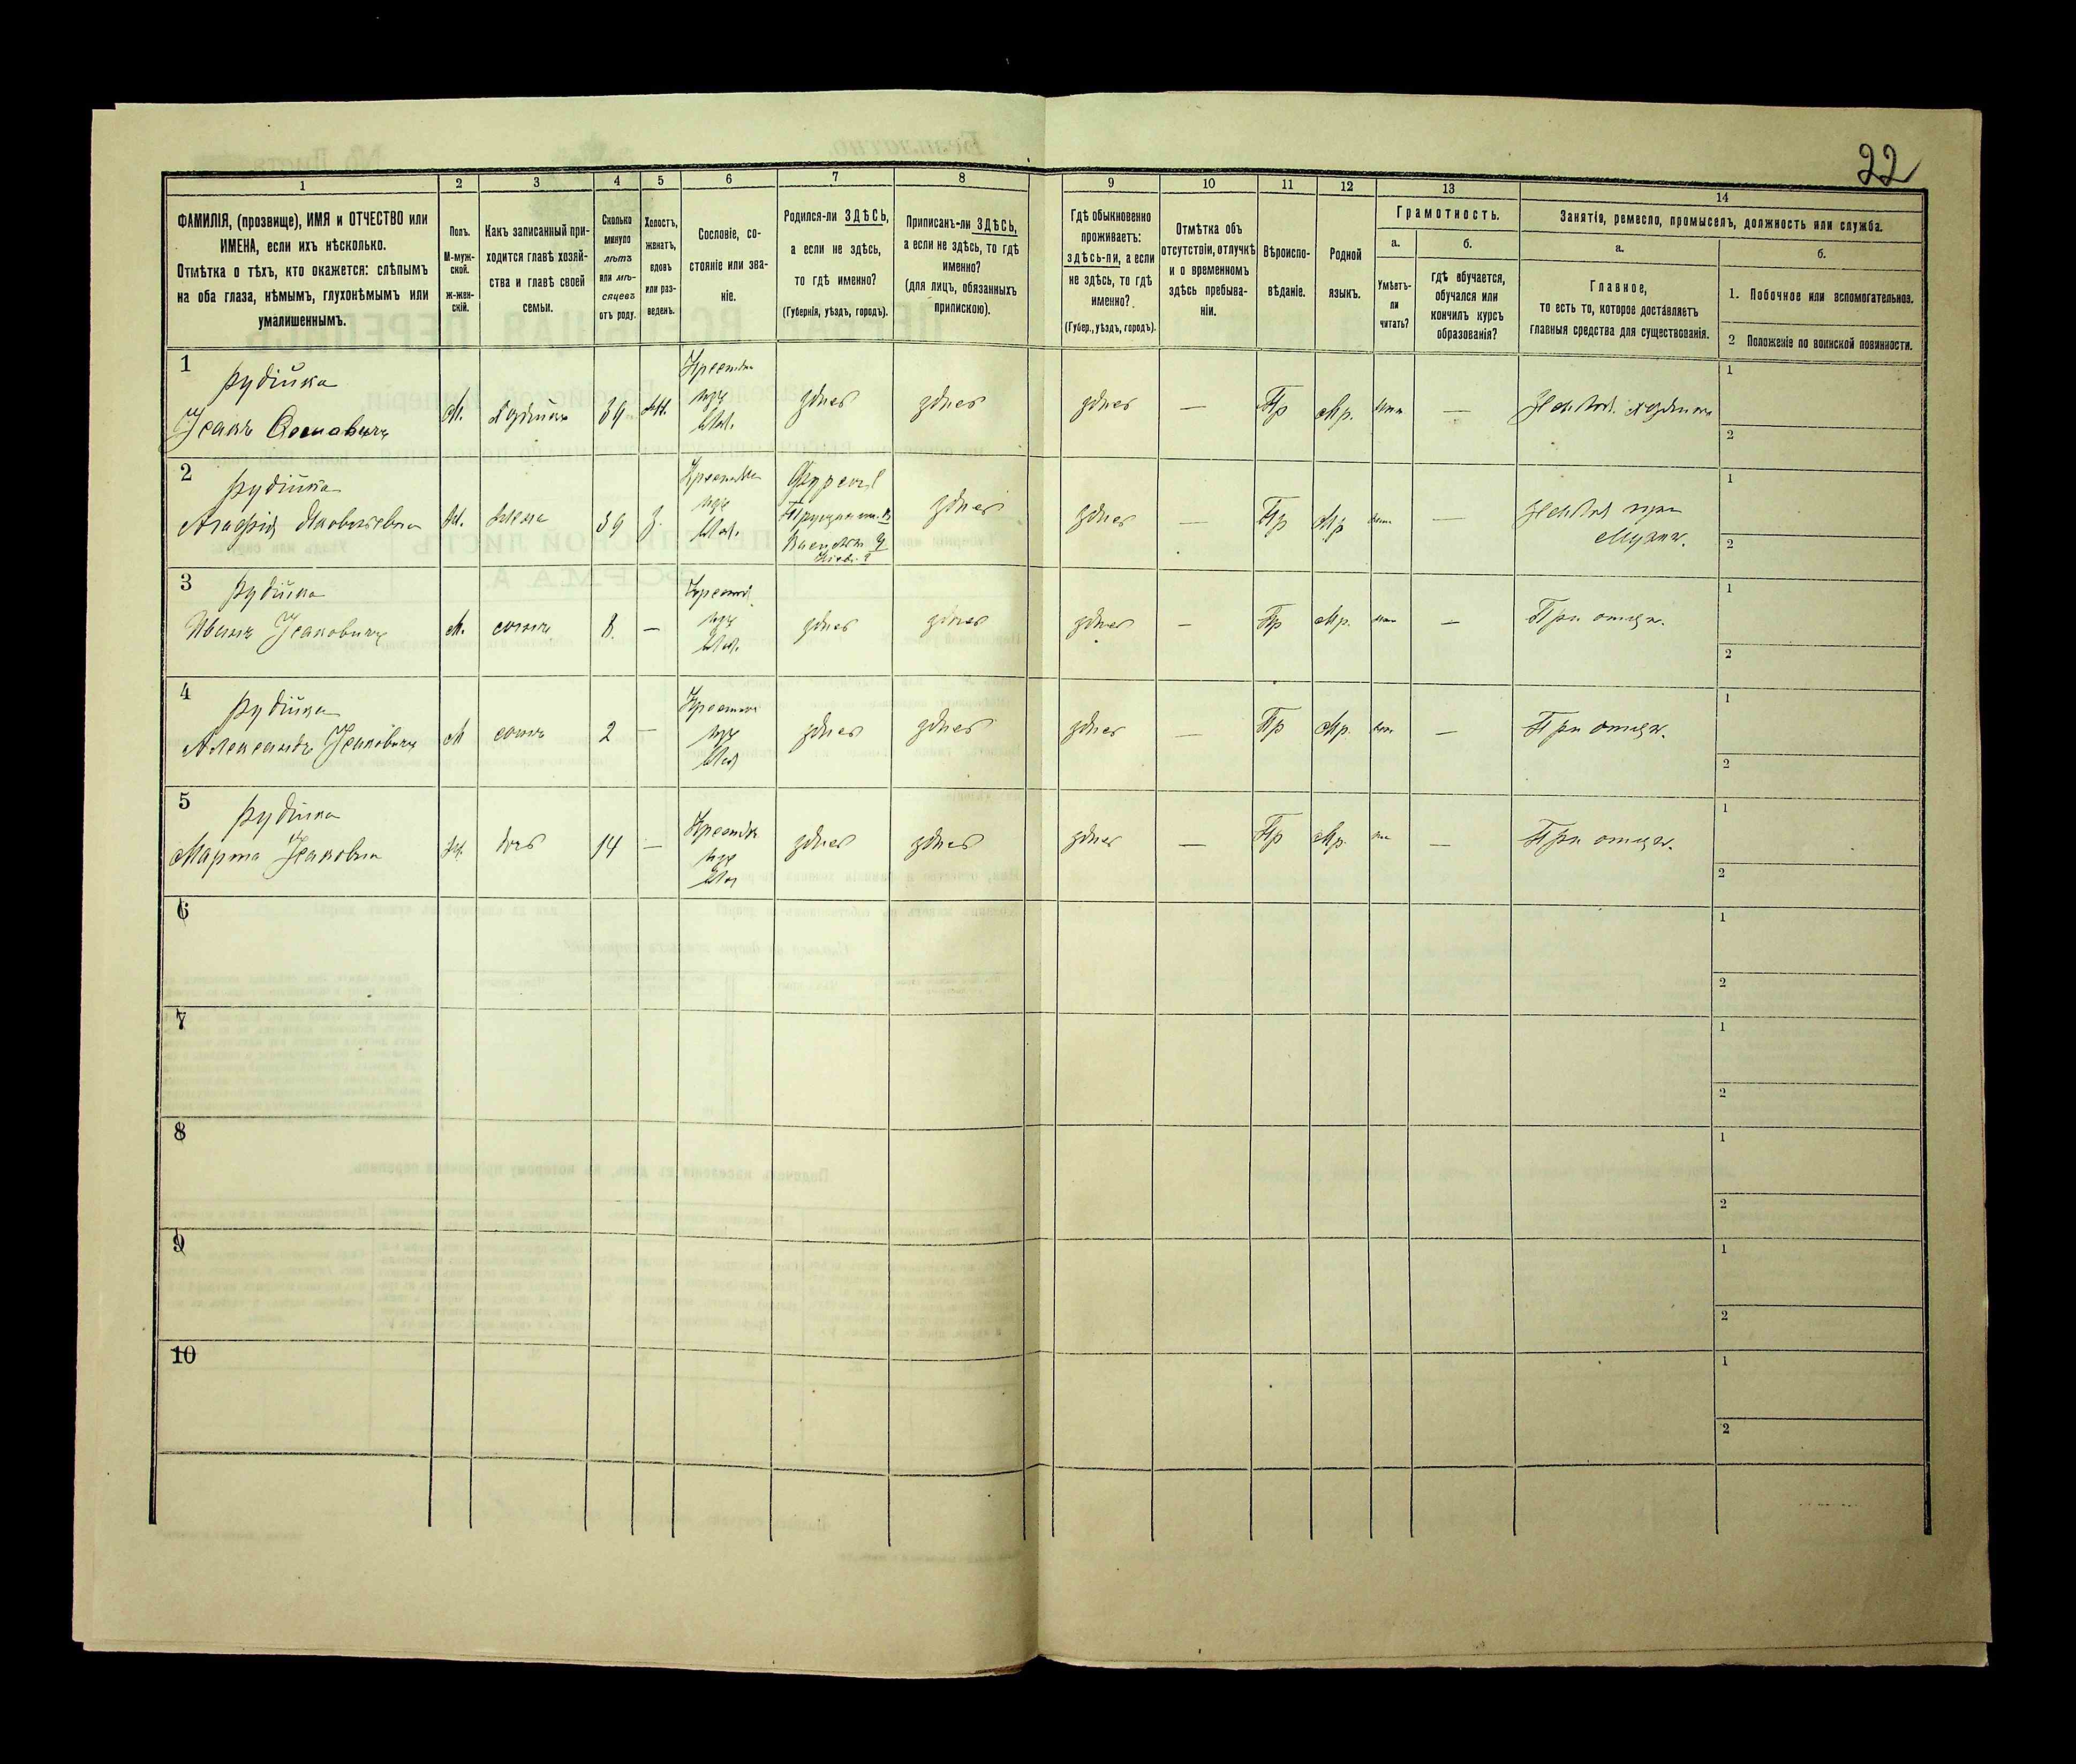 22
1
2
3
4
5
6
7
8
9
10
11
12
13
14
ФАМИЛІЯ, (прозвище), ИМЯ и ОТЧЕСТВО или
ИМЕНА, если ихъ нѣсколько.
Отмѣтка о тѣхъ, кто окажется: слѣпымъ
на оба глаза, нѣмымъ, глухонѣмымъ или
умалишеннымъ.
Полъ.
М-муж-
ской.
ж-жен-
скій.
Какъ записанный при-
ходится главѣ хозяй-
ства и главѣ своей
семьи.
Сколько
минуло
лѣтъ
или мѣ-
сяцевъ
отъ роду.
Холостъ,
женатъ,
вдовъ
или раз-
веденъ.
Сословіе, со-
стояніе или зва-
ніе.
Родился-ли ЗДѢСЬ,
а если не здѣсь,
то гдѣ именно?
(Губернія, уѣздъ, городъ).
Приписанъ-ли ЗДѢСЬ,
а если не здѣсь, то гдѣ
именно?
(для лицъ, обязанныхъ
припискою).
Гдѣ обыкновенно
проживаетъ:
здѣсь-ли, а если
не здѣсь, то гдѣ
именно?
(Губер., уѣздъ, городъ).
Отмѣтка объ
отсутствіи, отлучкѣ
и о временномъ
здѣсь пребыва-
ніи.
Вѣроиспо-
вѣданіе.
Родной
языкъ.
Грамотность.
а.
Умѣетъ-
ли
читать?
б.
гдѣ обучается,
обучался или
кончилъ курсъ
образованія?
Занятія, ремесло, промыселъ, должность или служба.
а.
Главное,
то есть то, которое доставляетъ
главныя средства для существованія.
б.
1. Побочное или вспомогательное.
2 Положеніе по воинской повинности.
1
Рудійка
М.
здѣсь
здѣсь
здѣсь
—
Пр
Мр.
—
1
2
2
Рудійка
Агафія Яковлевна
Ж.
жена
здѣсь
здѣсь
—
Пр
Мр
—
1
2
3
Рудійка
Иванъ Исаковичъ
М.
сынъ
8.
—
здѣсь
здѣсь
здѣсь
—
Пр
Мр.
—
При отцѣ.
1
2
4
Рудійка
Александръ Исаковичъ
М
сынъ
2
—
здѣсь
здѣсь
здѣсь
—
Пр
Мр.
—
При отцѣ.
1
2
5
Рудійка
Марта Исаковна
Ж.
дочь
14
—
здѣсь
здѣсь
здѣсь
—
Пр
Мр.
—
При отцѣ.
1
2
6
1
2
7
1
2
8
1
2
9
1
2
10
1
2